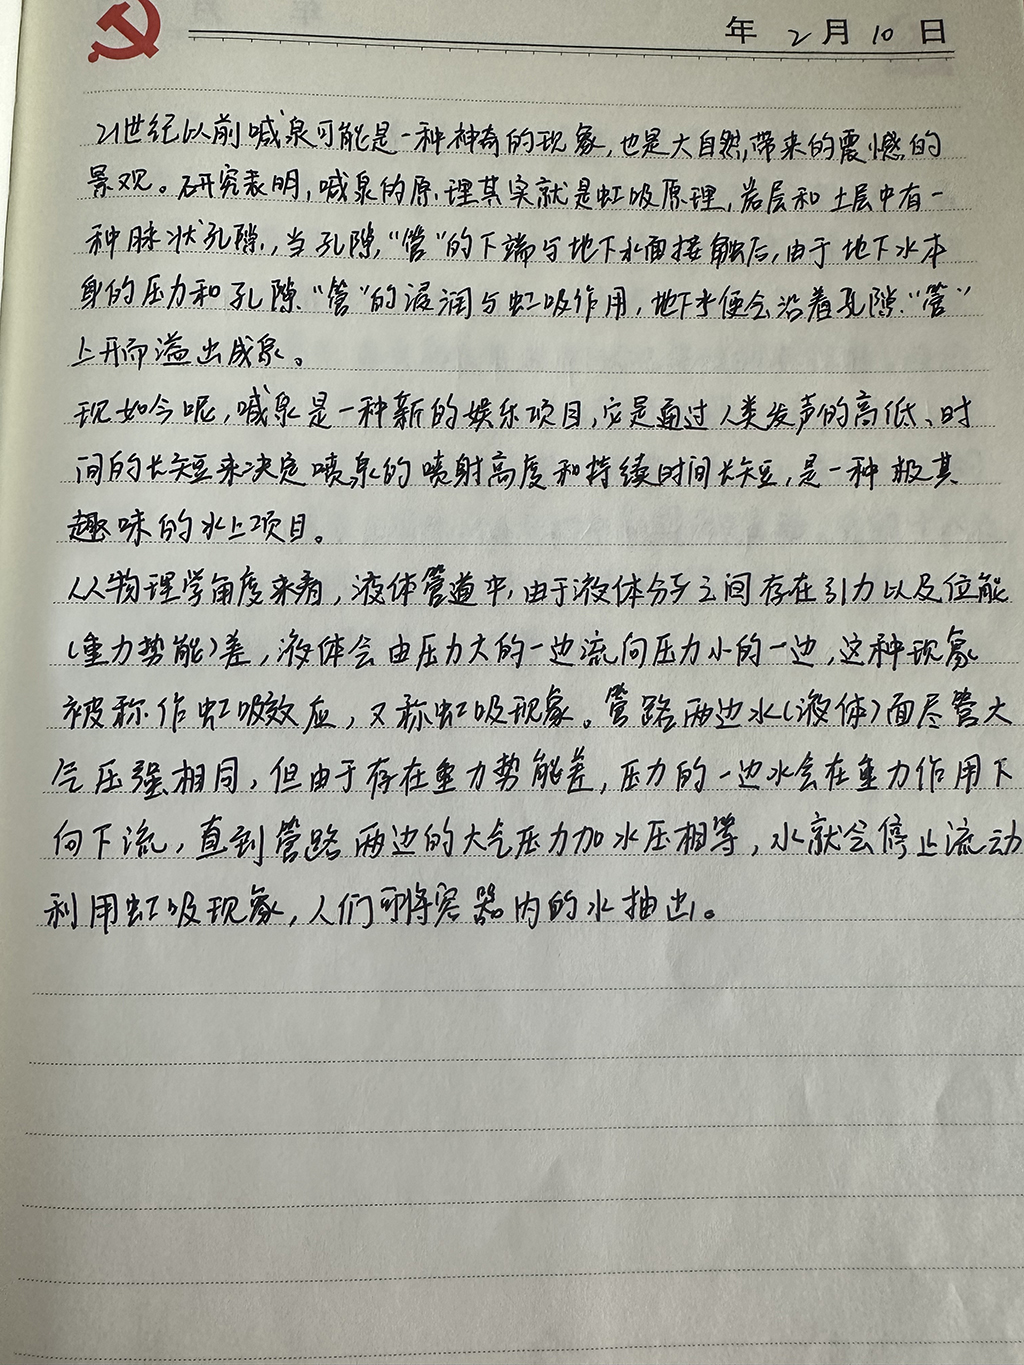 年 2 月 10 日
21世纪以前喊泉可能是一种神奇的现象,也是大自然,带来的震憾的
景观。研究表明,喊泉的原理其实就是虹吸原理,岩层和土层中有一
种脉状孔隙,当孔隙,“管”的下端与地下水面接触后,由于地下水本
身的压力和孔隙“管”的浸润与虹吸作用,地下水便会沿着孔隙“管”
上升而溢出成泉。
现如今呢,喊泉是一种新的娱乐项目,它是通过人类发声的高低、时
间的长短来决定喷泉的喷射高度和持续时间长短,是一种极其
趣味的水上项目。
从物理学角度来看,液体管道中,由于液体分子之间存在引力以及位能
(重力势能)差,液体会由压力大的一边流向压力小的一边,这种现象
被称作虹吸效应,又称虹吸现象。管路两边水(液体)面尽管大
气压强相同,但由于存在重力势能差,压力的一边水会在重力作用下
向下流,直到管路两边的大气压力加水压相等,水就会停止流动
利用虹吸现象,人们可将容器内的水抽出。